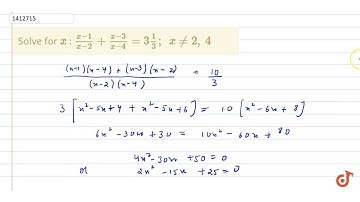 1412715
Solve for x : \frac{x-1}{x-2} + \frac{x-3}{x-4} = 3\frac{1}{3}; x ≠ 2, 4
\frac{(x-1)(x-4) + (x-3)(x-2)}{(x-2)(x-4)} = \frac{10}{3}
3 [x² -5x+4 + x² -5x+6] = 10 [x² -6x + 8]
6x² -30x +30 = 10x² - 60x + 80
4x² -30x +50 = 0
or 2x² -15x +25 = 0
doubtnut